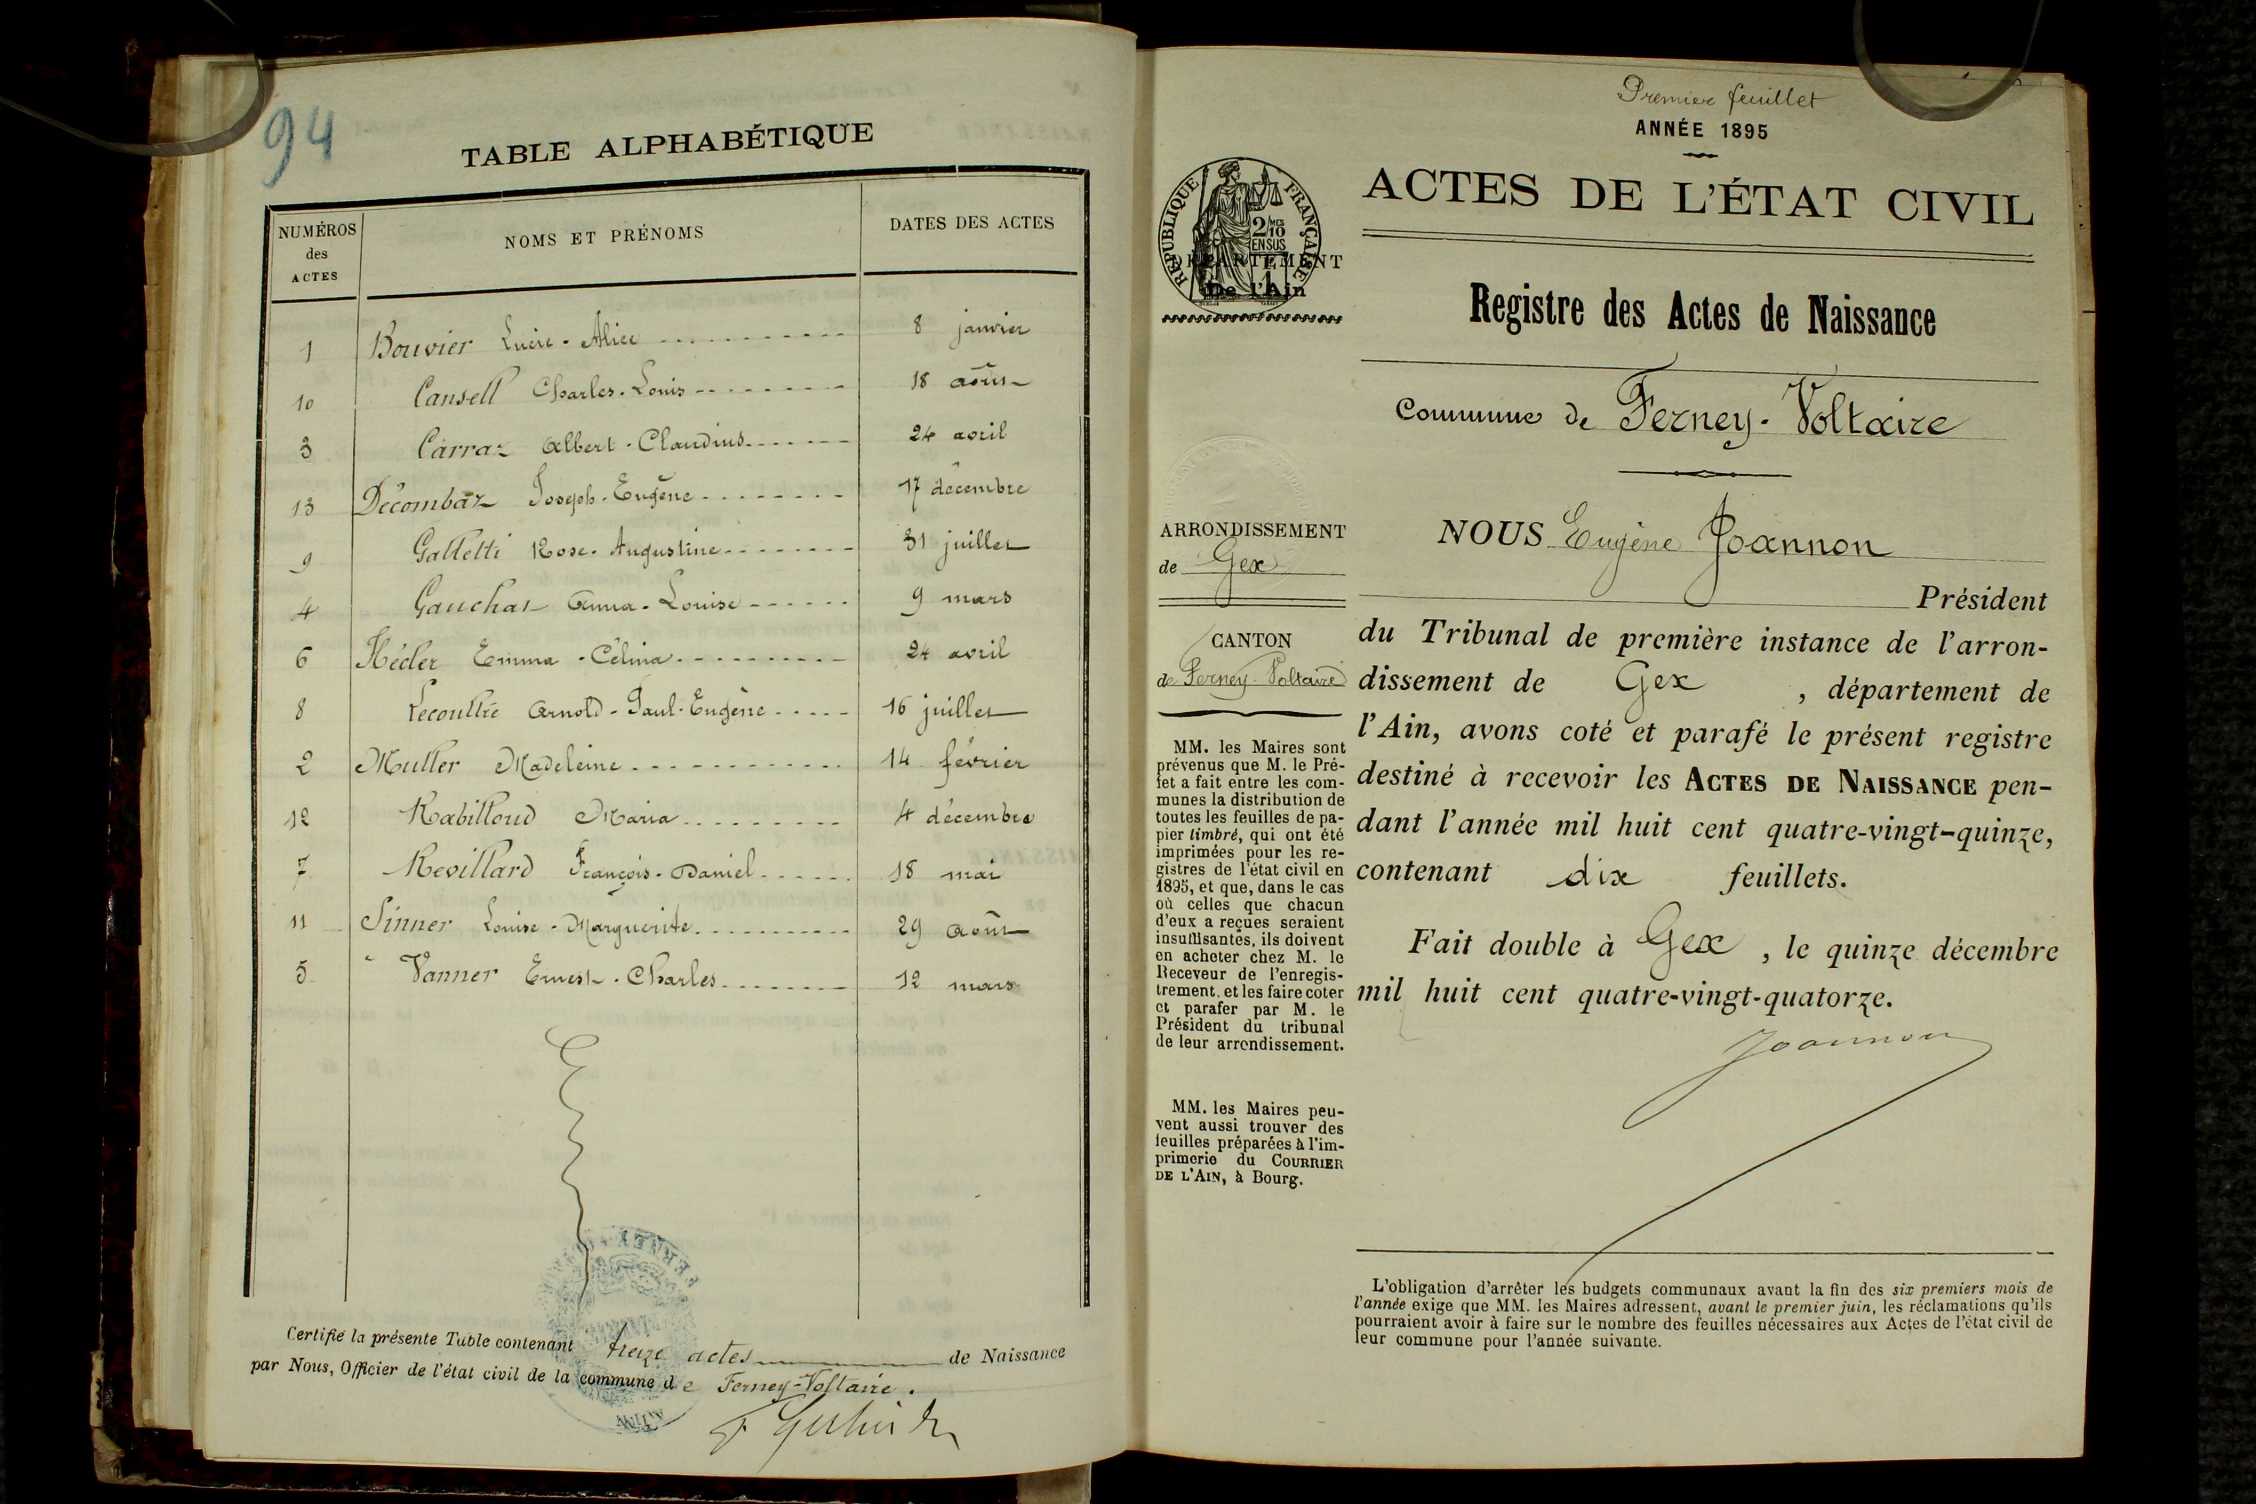 94
TABLE ALPHABÉTIQUE
NUMÉROS des ACTES
NOMS ET PRÉNOMS
DATES DES ACTES
1 Bouvier Lucie-Alice 8 janvier
10 Cansell Charles-Louis 18 août
3 Carraz Albert-Claudius 24 avril
13 Décombaz Joseph-Eugène 17 décembre
9 Galletti Rose-Augustine 31 juillet
4 Gauchat Anna-Louise 9 mars
6 Hécler Emma-Célina 24 avril
8 Lecoultre Arnold-Paul-Eugène 16 juillet
2 Muller Madeleine 14 février
12 Rabilloud Maria 4 décembre
7 Revillard François-Daniel 18 mai
11 Sinner Louise-Marguerite 29 août
5 Vanner Ernest-Charles 12 mars
Certifié la présente Table contenant treize actes de Naissance
par Nous, Officier de l'état civil de la commune de Ferney-Voltaire.
Premier feuillet
ANNÉE 1895
ACTES DE L'ÉTAT CIVIL
RÉPUBLIQUE FRANÇAISE
2/10 MES
EN SUS
DÉPARTEMENT
De l'Ain
Registre des Actes de Naissance
Commune de Ferney-Voltaire
ARRONDISSEMENT
de Gex
CANTON
de Ferney-Voltaire
MM. les Maires sont
prévenus que M. le Pré-
fet a fait entre les com-
munes la distribution de
toutes les feuilles de pa-
pier timbré, qui ont été
imprimées pour les re-
gistres de l'état civil en
1895, et que, dans le cas
où celles que chacun
d'eux a reçues seraient
insuffisantes, ils doivent
en acheter chez M. le
Receveur de l'enregis-
trement, et les faire coter
et parafer par M. le
Président du tribunal
de leur arrondissement.
MM. les Maires peu-
vent aussi trouver des
feuilles préparées à l'im-
primerie du COURRIER
DE L'AIN, à Bourg.
NOUS Eugène Joannon
Président
du Tribunal de première instance de l'arron-
dissement de Gex, département de
l'Ain, avons coté et parafé le présent registre
destiné à recevoir les ACTES DE NAISSANCE pen-
dant l'année mil huit cent quatre-vingt-quinze,
contenant dix feuillets.
Fait double à Gex, le quinze décembre
mil huit cent quatre-vingt-quatorze.
Joannon
L'obligation d'arrêter les budgets communaux avant la fin des six premiers mois de
l'année exige que MM. les Maires adressent, avant le premier juin, les réclamations qu'ils
pourraient avoir à faire sur le nombre des feuilles nécessaires aux Actes de l'état civil de
leur commune pour l'année suivante.